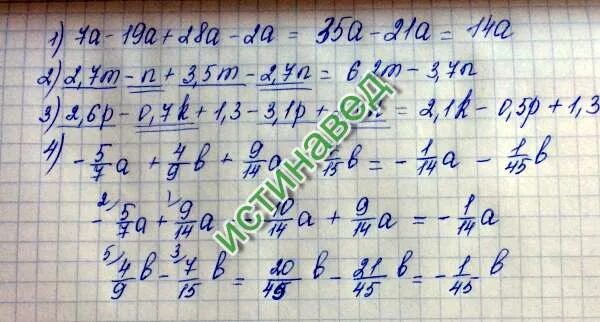 1) 7a - 19a + 28a - 2a = 35a - 21a = 14a
2) 2,7m - n + 3,5m - 2,7n = 6,2m - 3,7n
3) 2,6p - 0,7k + 1,3 - 3,1p + = 2,1k - 0,5p + 1,3
4) - 5/7 a + 4/9 b + 9/14 a - /15 b = - 1/14 a - 1/45 b
2) 1)
- 5/7 a + 9/14 a 10/14 a + 9/14 a = - 1/14 a
5) 3)
4/9 b - 7/15 b = 20/45 b - 21/45 b = - 1/45 b
истинавед